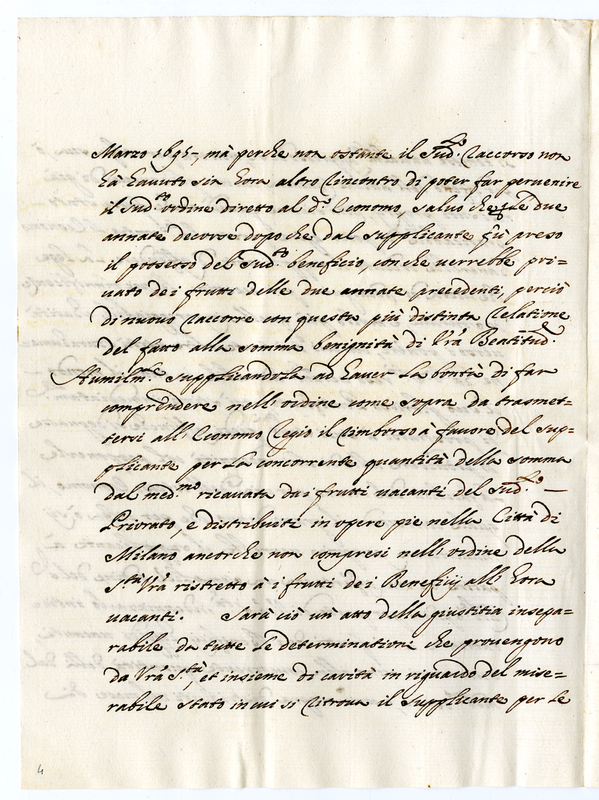 Marzo 1695, mà perche non ostante il Sud.to Raccorso non
hà havuto sin hora altro Rincontro di poter far pervenire
il Sud.to ordine diretto al d.o Economo, salvo che le due
annate decorse dopo che dal supplicante fù preso
il possesso del Sud.to beneficio, con che verrebbe pri=
vato dei frutti delle due annate precedenti, perciò
di nuovo Raccorre con questa più distinta Relatione
del fatto alla somma benignità di Vrã Beatitud.e
Humilm.te supplicandola ad haver la bontà di far
comprendere nell' ordine come sopra da trasmet=
tersi all' Economo Regio il Rimborso à favore del sup=
plicante per la concorrente quantità della somma
dal med.mo ricavata dai frutti vacanti del Sud.to —
Priorato, e distribuiti in opere pie nella Città di
Milano ancorche non compresi nell' ordine della
S.tà Vrã ristretto à i frutti dei Beneficij all' hora
vacanti. Sarà ciò un' atto della giustitia insepa=
rabile da tutte le determinationi che provengono
da Vrã S.tà, et insieme di carità in riguardo del mise=
rabile stato in cui si Ritrova il supplicante per le
4